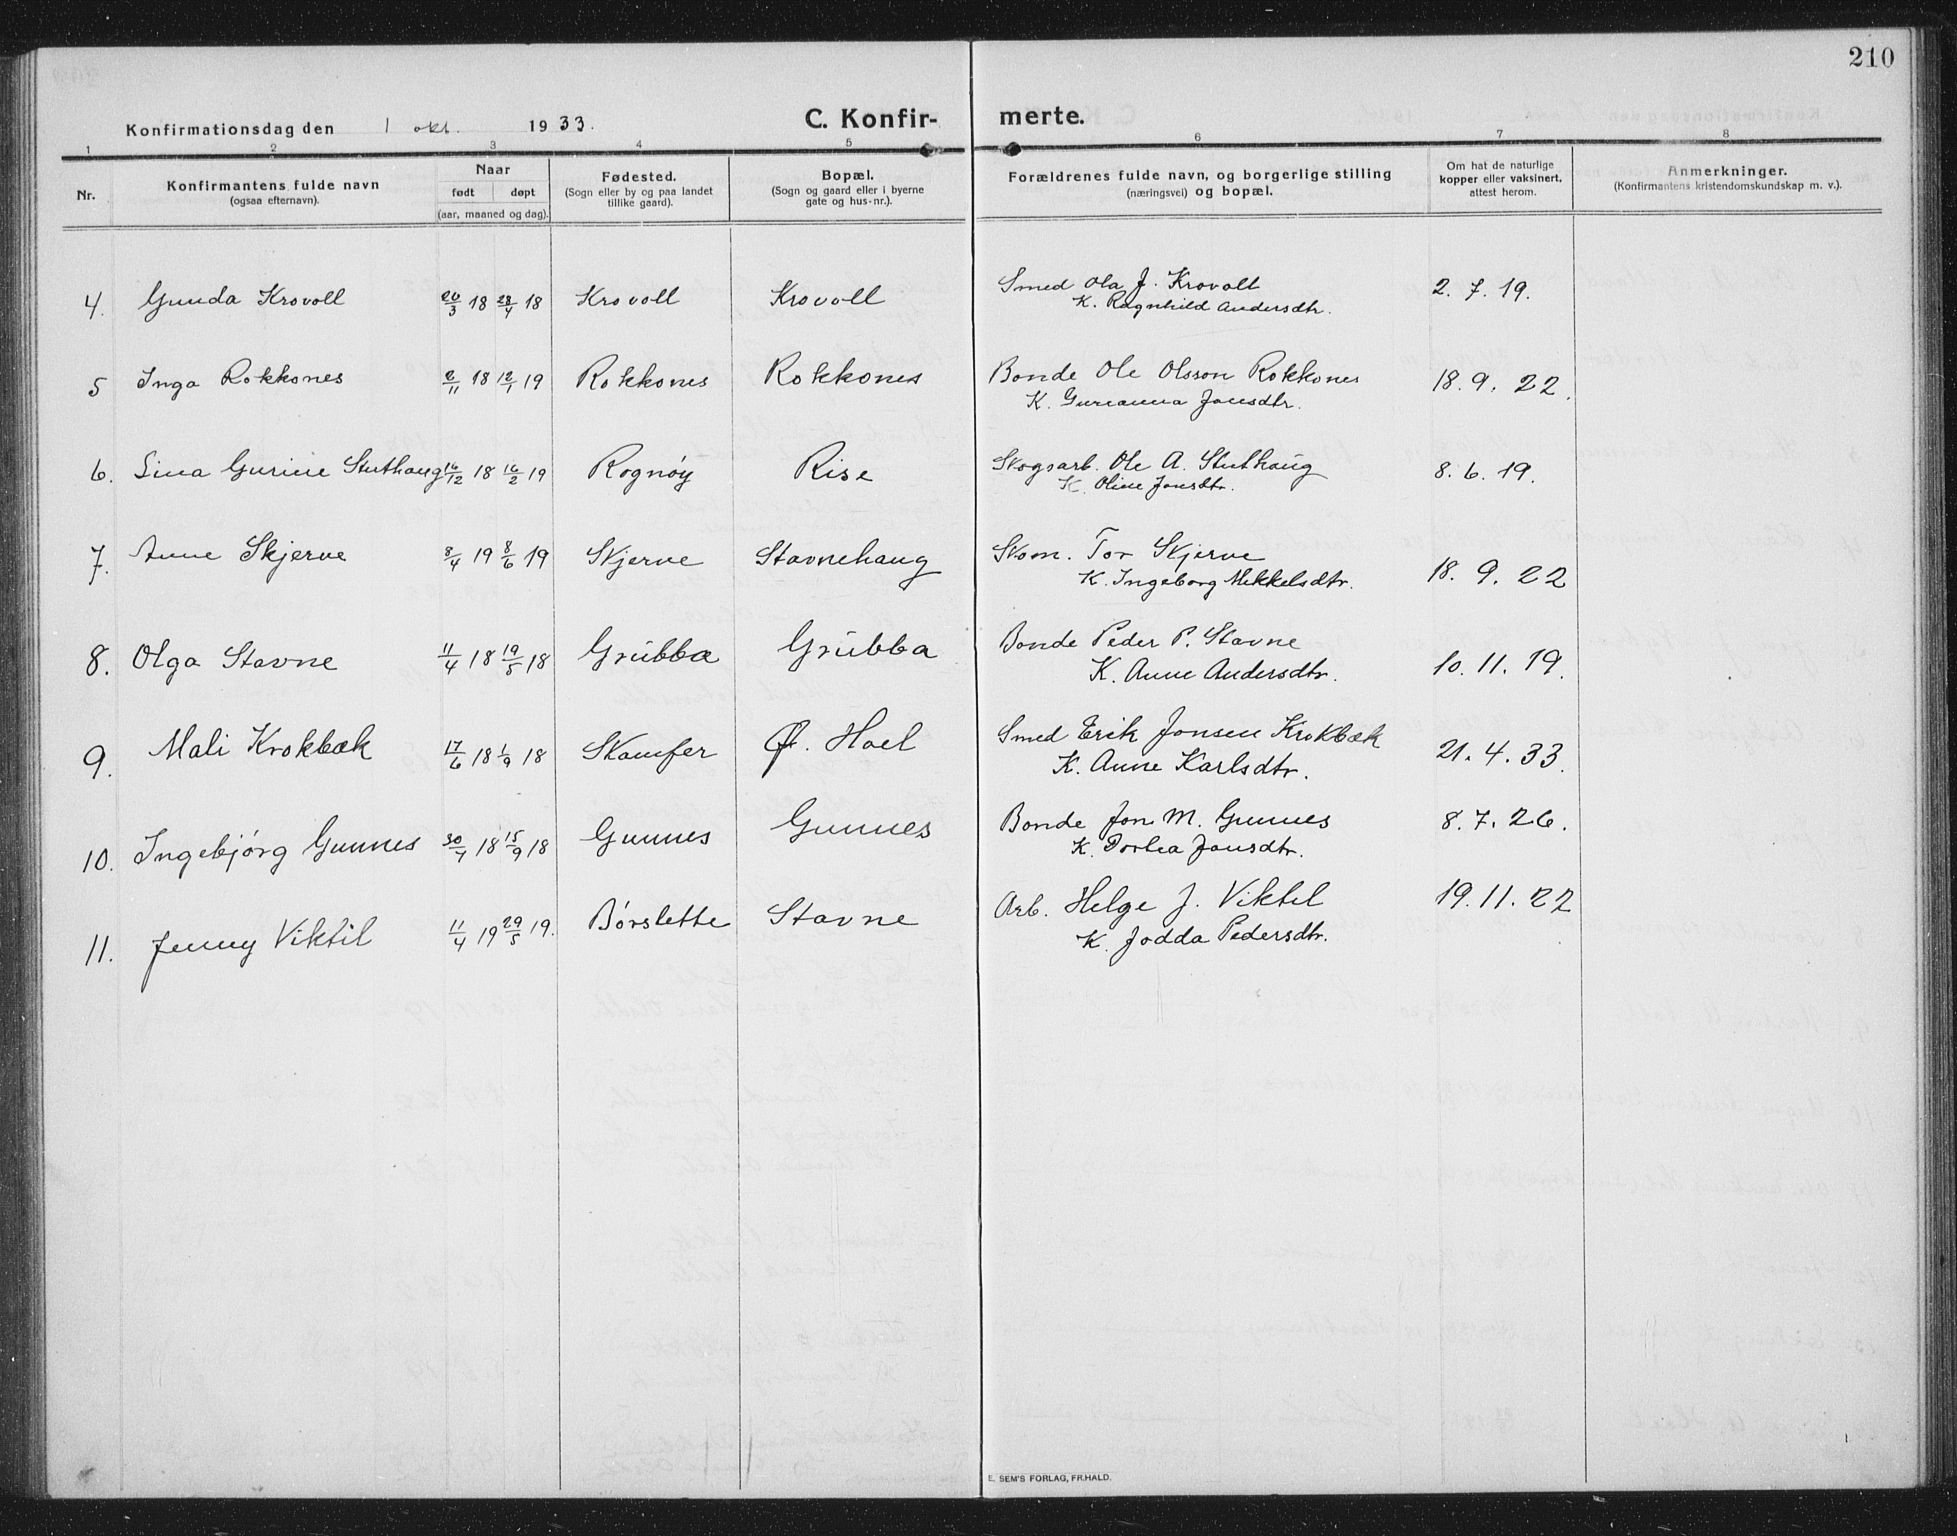 210
Konfirmationsdag den 1 okt. 1933.
C. Konfirmerte.
1 2 3 4 5 6 7 8
Nr.
Konfirmantens fulde navn
(ogsaa efternavn).
Naar
født døpt
(aar, maaned og dag).
Fødested.
(Sogn eller by og paa landet
tillike gaard).
Bopæl.
(Sogn og gaard eller i byerne
gate og hus-nr.).
Forældrenes fulde navn, og borgerlige stilling
(næringsvei) og bopæl.
Om hat de naturlige
kopper eller vaksinert,
attest herom.
Anmerkninger.
(Konfirmantens kristendomskundskap m. v.).
4. Gunda Krovoll 20/3 18 28/4 18 Krovoll Krovoll Smed Ola J. Krovoll 2. 7. 19.
K. Ragnhild Andersdtr.
5 Inga Rokkones 2/11 18 12/1 19 Rokkones Rokkones Bonde Ole Olsson Rokkones 18. 9. 22.
K. Gurianna Jonsdtr.
6. Lina Gurine Stuthaug 16/12 18 16/2 19 Rognøy Rise Skogsarb. Ole A. Stuthaug 8. 6. 19.
K. Oline Jonsdtr.
7. Anne Skjerve 8/4 19 8/6 19 Skjerve Stavnehaug Skom. Tor Skjerve 18. 9. 22
K. Ingeborg Mikkelsdtr.
8. Olga Stavne 11/4 18 19/5 18 Grubba Grubba Bonde Peder P. Stavne 10. 11. 19.
K. Anne Andersdtr.
9. Mali Krokbæk 17/6 18 1/9 18 Skamfer Ø. Hoel Smed Erik Jonsen Krokbæk 21. 4. 33.
K. Anne Karlsdtr.
10. Ingebjørg Gunnes 30/7 18 15/9 18 Gunnes Gunnes Bonde Jon M. Gunnes 8. 7. 26.
K. Dortea Jonsdtr.
11. Jenny Viktil 11/4 19 29/5 19. Børslette Stavne Arb. Helge J. Viktil 19. 11. 22
K. Jodda Pedersdtr.
E. SEM'S FORLAG, FR.HALD.